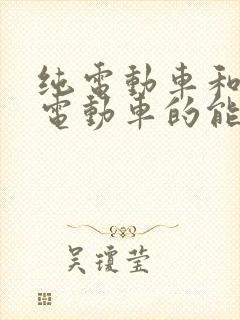 纯電動車和
電動車的能
吴瓊莹